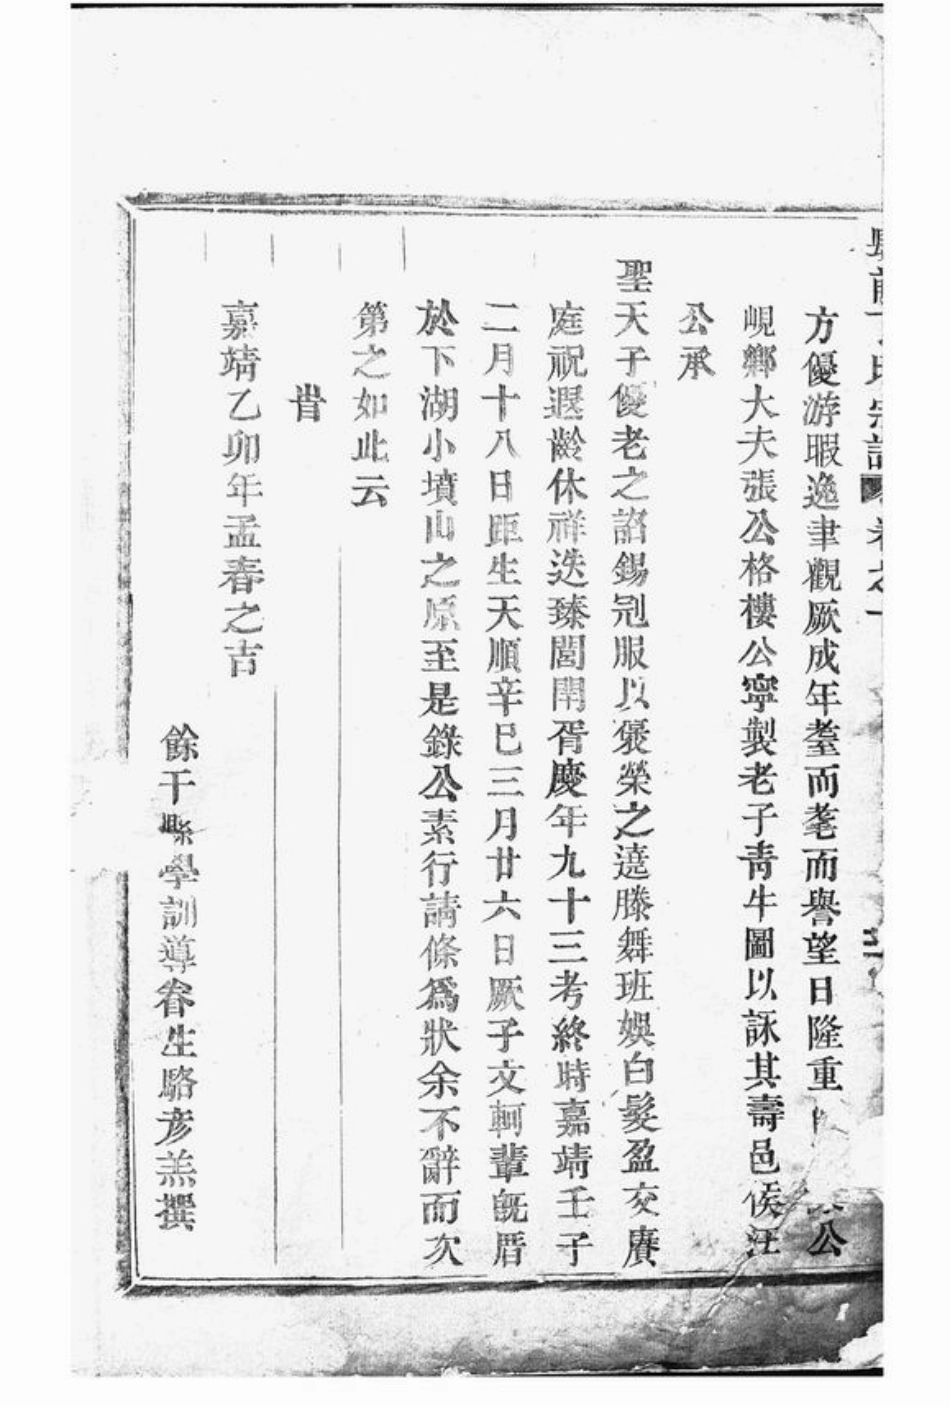 氏宗譜 卷之一
方優游暇逸聿觀厥成年耋而耄而譽望日隆重 公
峴鄉大夫張公格樓公寧製老子青牛圖以詠其壽邑侯汪
公承
聖天子優老之詔錫冠服以褒榮之遶膝舞班娛白髮盈交賡
庭祝遐齡休祥迭臻閭閈胥慶年九十三考終時嘉靖壬子
二月十八日距生天順辛巳三月廿六日厥子文軻輩旣厝
於下湖小墳山之原至是錄公素行請條爲狀余不辭而次
第之如此云
旹
嘉靖乙卯年孟春之吉
餘干縣學訓導眷生駱彥羔撰